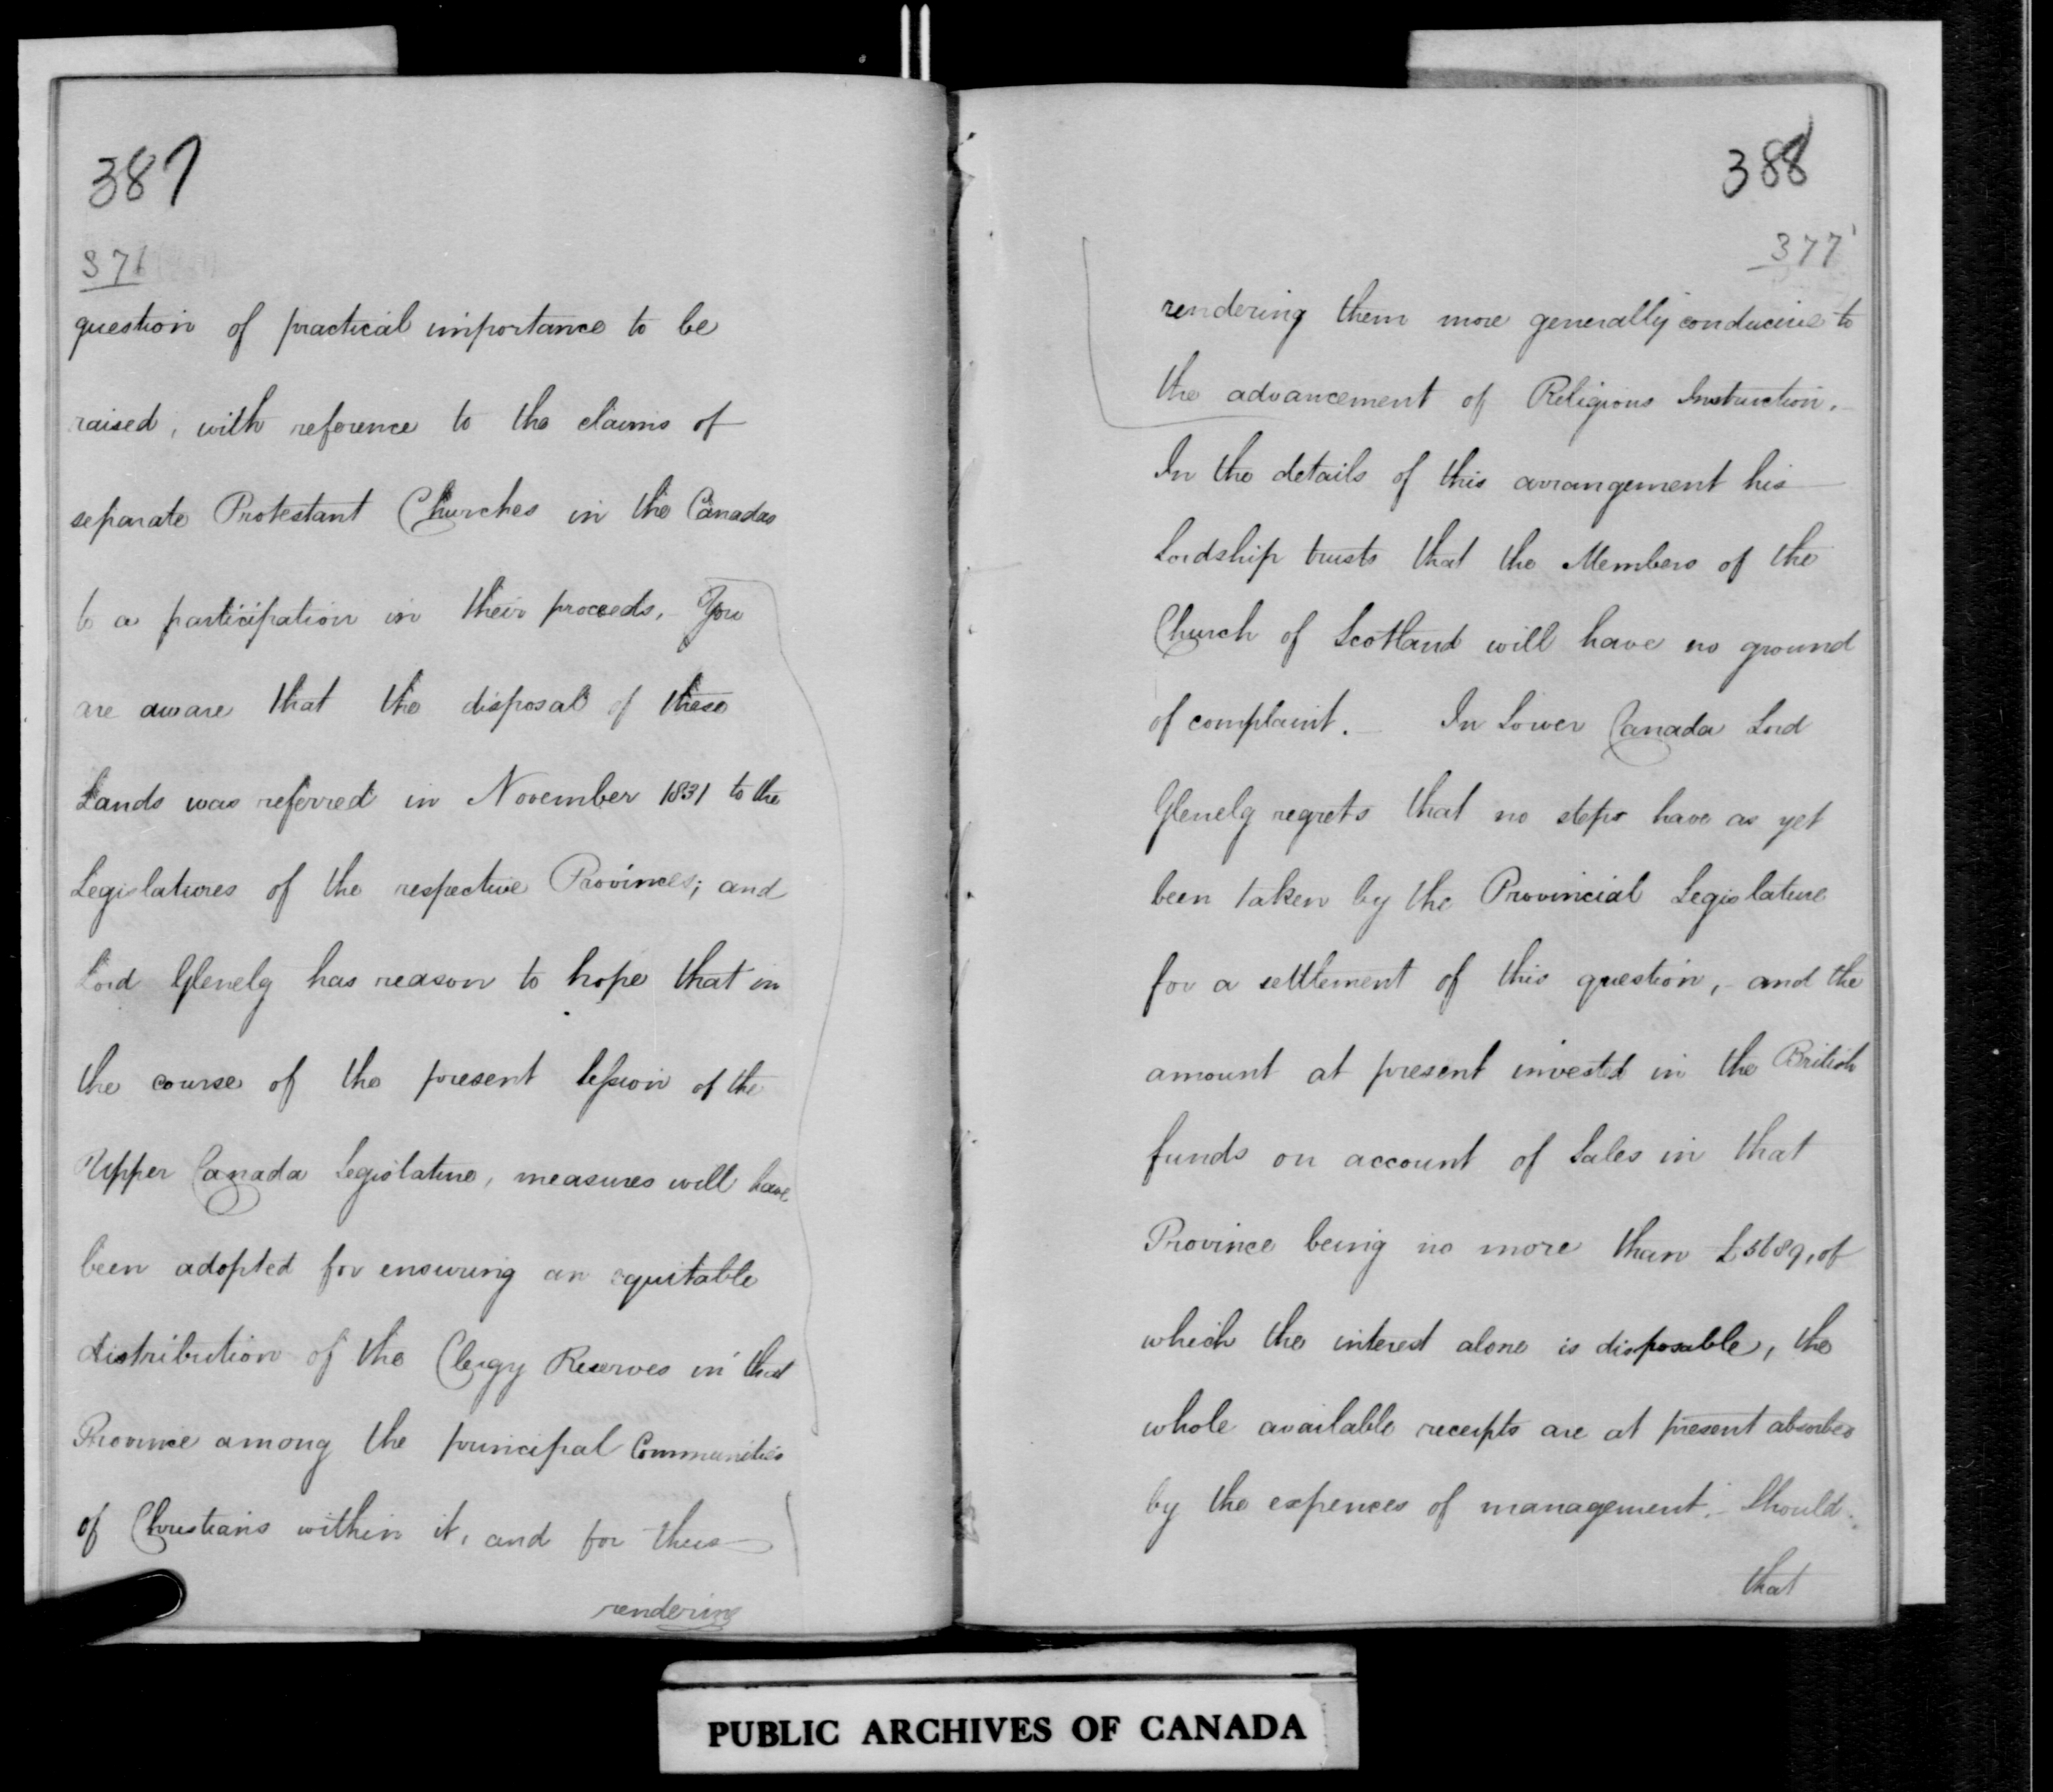 387
371
question of practical importance to be
raised, with reference to the claims of
separate Protestant Churches in the Canadas
to a participation in their proceeds. You
are aware that the disposal of these
Lands was referred in November 1831 to the
Legislatures of the respective Provinces; and
Lord Glenelg has reason to hope that in
the course of the present Session of the
Upper Canada Legislature, measures will have
been adopted for ensuring an equitable
distribution of the Clergy Reserves in that
Province among the principal Communities
of Christians within it, and for thus
rendering
388
377
rendering them more generally conducive to
the advancement of Religious Instruction.
In the details of this arrangement his
Lordship trusts that the Members of the
Church of Scotland will have no ground
of complaint. In Lower Canada Lord
Glenelg regrets that no steps have as yet
been taken by the Provincial Legislature
for a settlement of this question, and the
amount at present invested in the British
funds on account of Sales in that
Province being no more than of
which the interest alone is disposable, the
whole available receipts are at present absorbed
by the expences of management. Should
that
PUBLIC ARCHIVES OF CANADA